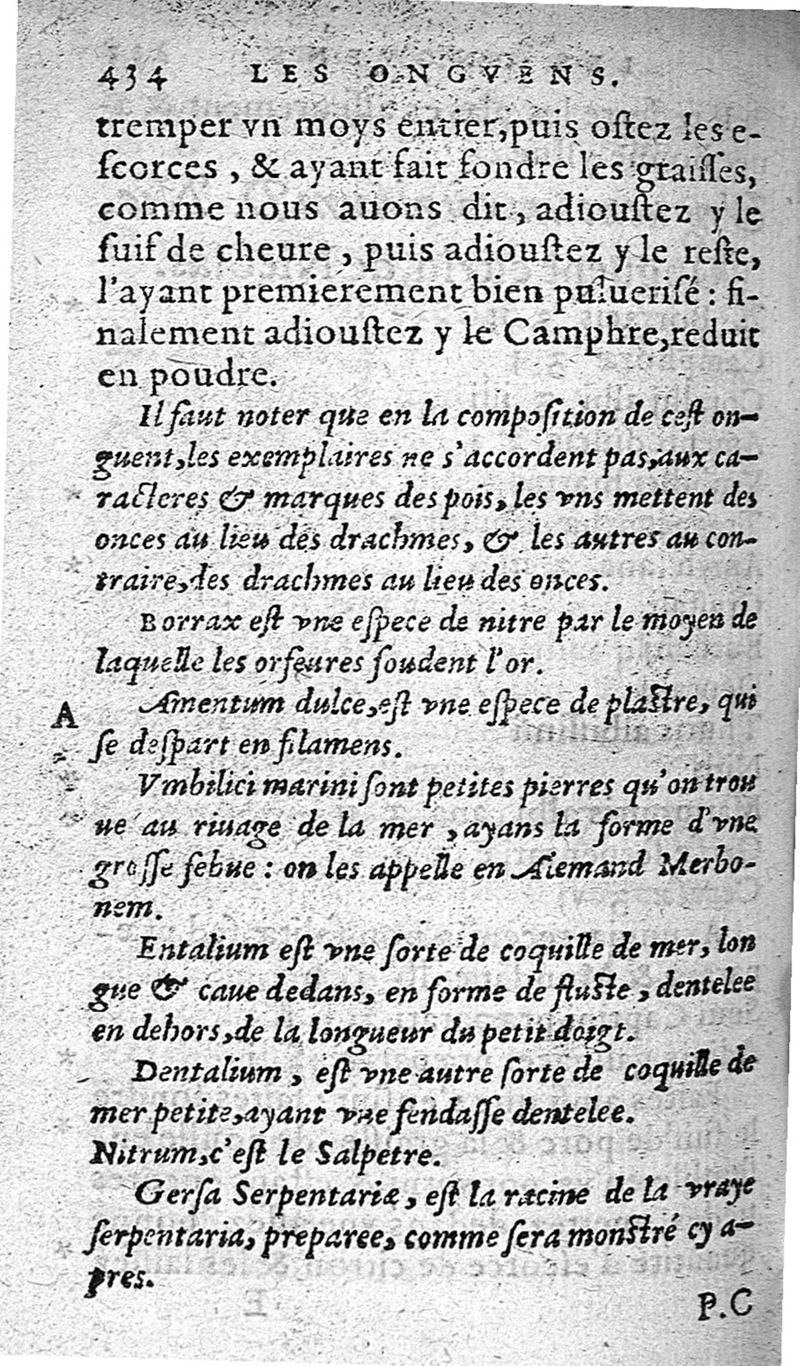 434 LES ONGVENS.
tremper vn moys entier, puis ostez les e-
scorces, & ayant fait fondre les graisses,
comme nous auons dit, adioustez y le
suif de cheure, puis adioustez y le reste,
l'ayant premierement bien puluerisé : fi-
nalement adioustez y le Camphre, reduit
en poudre.
Il faut noter que en la composition de cest on-
guent, les exemplaires ne s'accordent pas, aux ca-
racteres & marques des pois, les vns mettent des
onces au lieu des drachmes, & les autres au con-
traire, des drachmes au lieu des onces.
Borrax est vne espece de nitre par le moyen de
laquelle les orfeures soudent l'or.
Amentum dulce, est vne espece de plastre, qui
A
se despart en filamens.
Vmbilici marini sont petites pierres qu'on trou
ue au riuage de la mer, ayans la forme d'vne
grosse febue : on les appelle en Alemand Merbo-
nem.
Entalium est vne sorte de coquille de mer, lon
gue & caue dedans, en forme de fluste, dentelee
en dehors, de la longueur du petit doigt.
Dentalium, est vne autre sorte de coquille de
mer petite, ayant vne fendasse dentelee.
Nitrum, c'est le Salpetre.
Gersa Serpentariæ, est la racine de la vraye
serpentaria, preparee, comme sera monstré cy a-
pres.
P.C